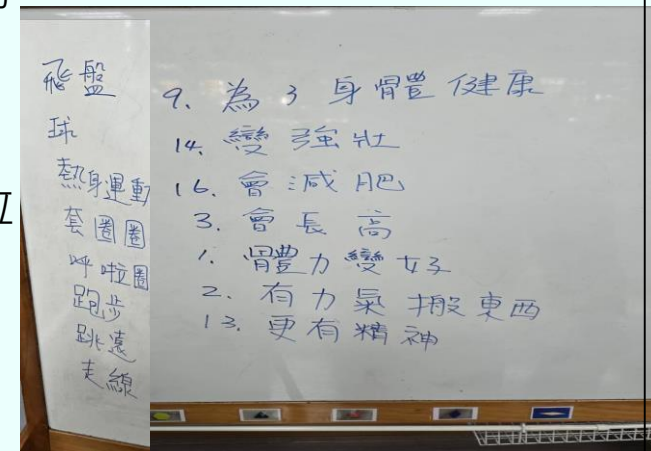 飛盤
球
熱身運動
套圈圈
呼啦圈
跑步
跳遠
走線
9. 為了身體健康
14. 變強壯
16. 會減肥
3. 會長高
1. 體力變好
2. 有力氣搬東西
13. 更有精神